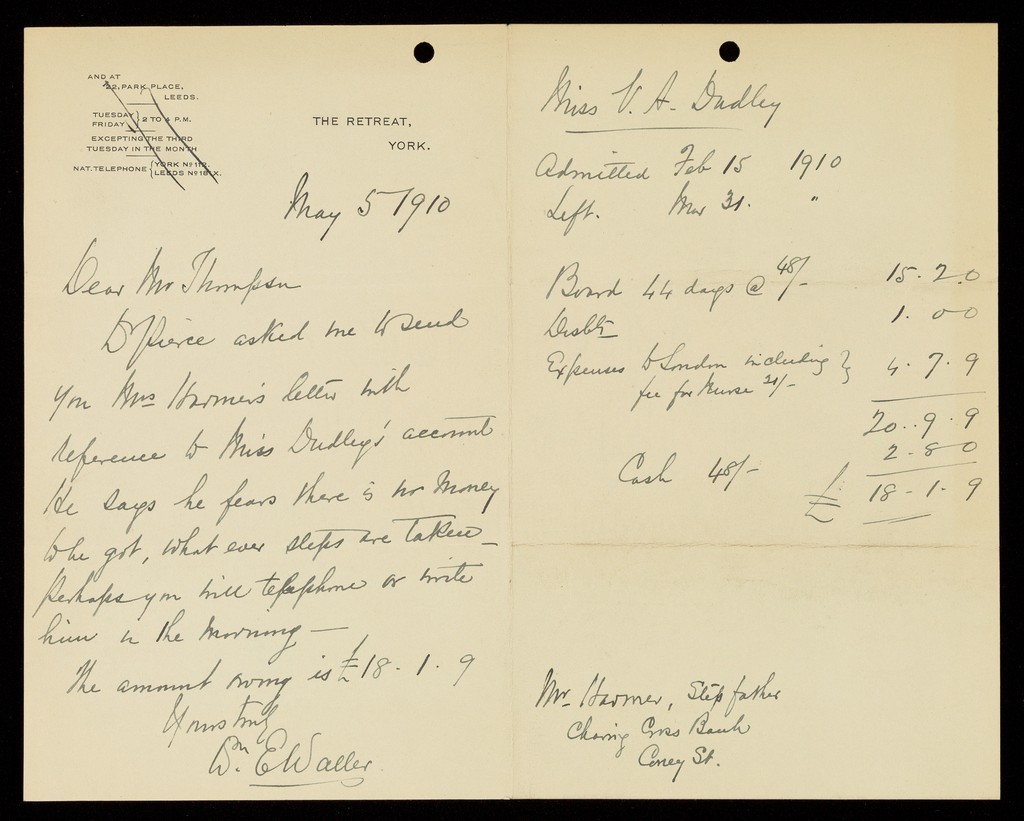 AND AT
22, PARK PLACE,
LEEDS.
TUESDAY } 2 TO 4 P.M.
FRIDAY
EXCEPTING THE THIRD
TUESDAY IN THE MONTH
NAT. TELEPHONE { YORK Nº 112.
LEEDS Nº
THE RETREAT,
YORK.
May 5 1910
Dear Mr Thompson
Dr Pierce asked me to send
you Mrs Harmer's letter with
reference to Miss Dudley's account
He says he fears there is no money
to be got, what ever steps are taken –
Perhaps you will telephone or write
him in the morning –
The amount owing is £18 - 1 - 9
Yours truly
Wm. E Waller.
Miss V. A. Dudley
Admitted Feb 15 1910
Left. Mar 31. "
Board 44 days @ 48/- 15. 2. 0
Disbts 1. 0 0
Expenses to London including } 4. 7. 9
fee for Nurse 21/-
20. 9. 9
Cash 48/- 2 - 8 0
£ 18 - 1. 9
Mr. Harmer, Step father
Charing Cross Bank
Coney St.